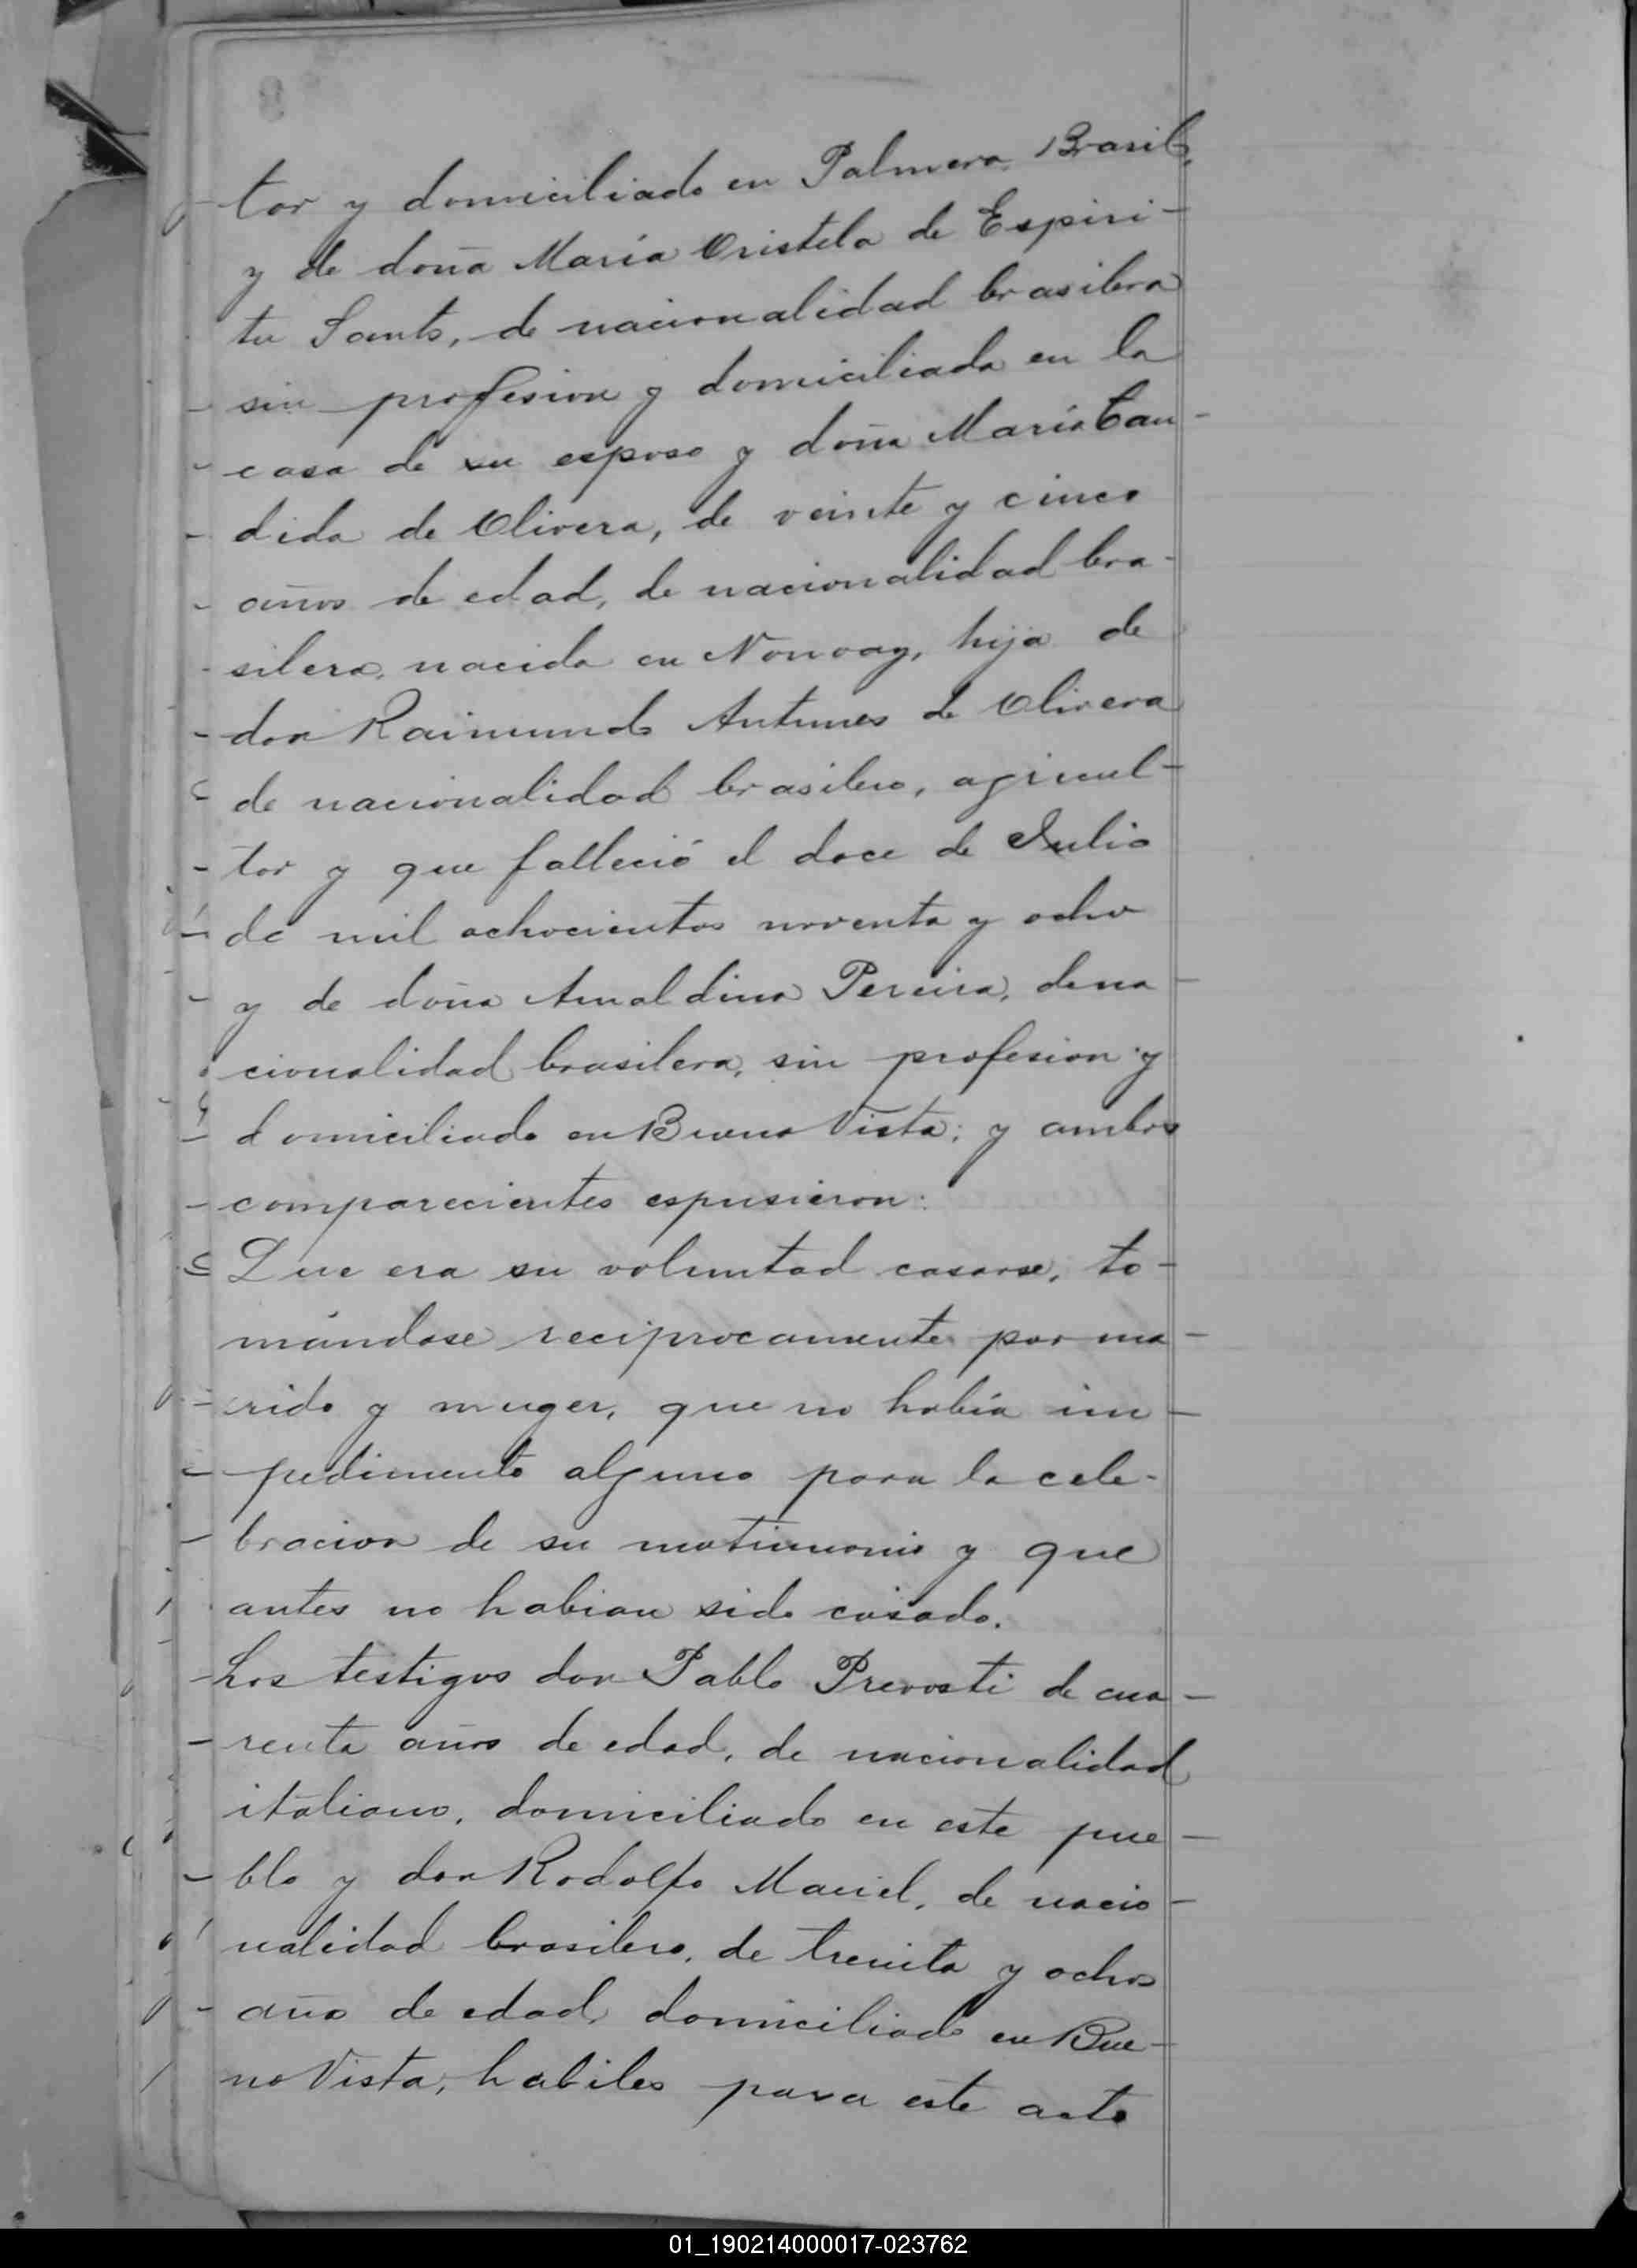 tor y domiciliado en Palmera, Brasil,
y de doña María Cristela de Espiri-
tu Santo, de nacionalidad brasilera
sin profesion y domiciliada en la
casa de su esposo y doña María Can-
dida de Olivera, de veinte y cinco
años de edad, de nacionalidad bra-
silera, nacida en Nonoay, hija de
don Raimundo Antunes de Olivera
de nacionalidad brasilero, agricul-
tor y que falleció el doce de Julio
de mil ochocientos noventa y ocho
y de doña Amaldina Pereira, de na-
cionalidad brasilera, sin profesion y
domiciliado en Buena Vista; y ambos
comparecientes espusieron:
Que era su voluntad casarse, to-
mándose reciprocamente por ma-
rido y muger, que no había im-
pedimento alguno para la cele-
bracion de su matrimonio y que
antes no habian sido casado.
Los testigos don Pablo Prevosti de cua-
renta años de edad, de nacionalidad
italiano, domiciliado en este pue-
blo y don Rodolfo Maciel, de nacio-
nalidad brasilero, de treinta y ocho
año de edad, domiciliado en Bue-
na Vista, habiles para este acto
01_190214000017-023762